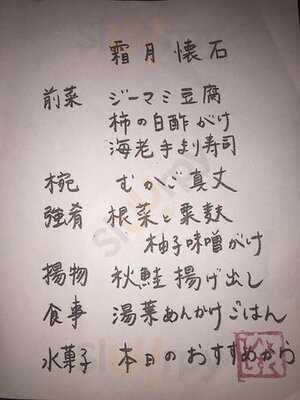 霜月懐石
前菜 ジーマミ豆腐
柿の白酢がけ
海老手より寿司
椀 むかご真丈
強肴 根菜と粟麩
柚子味噌がけ
揚物 秋鮭揚げ出し
食事 湯葉あんかけごはん
水菓子 本日のおすすめから